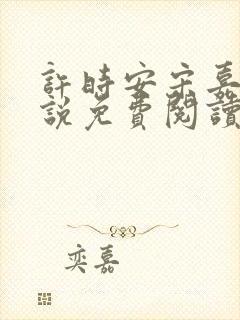 許時安宋嘉
說免費閱讀
奕嘉